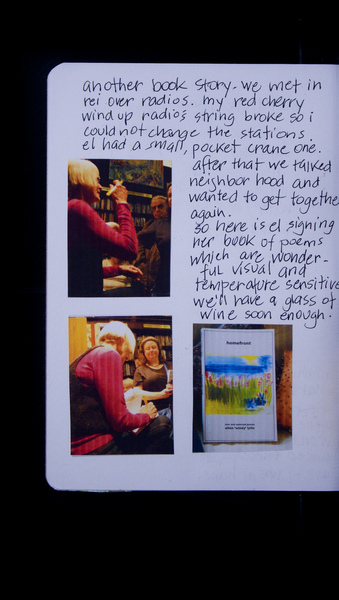 another book story. we met in
rei over radios. my red cherry
wind up radio's string broke so i
could not change the stations.
el had a small, pocket crane one.
after that we talked
neighbor hood and
wanted to get together
again.
so here is el signing
her book of poems
which are wonder-
ful visual and
temperature sensitive
we'll have a glass of
wine soon enough.
homefront